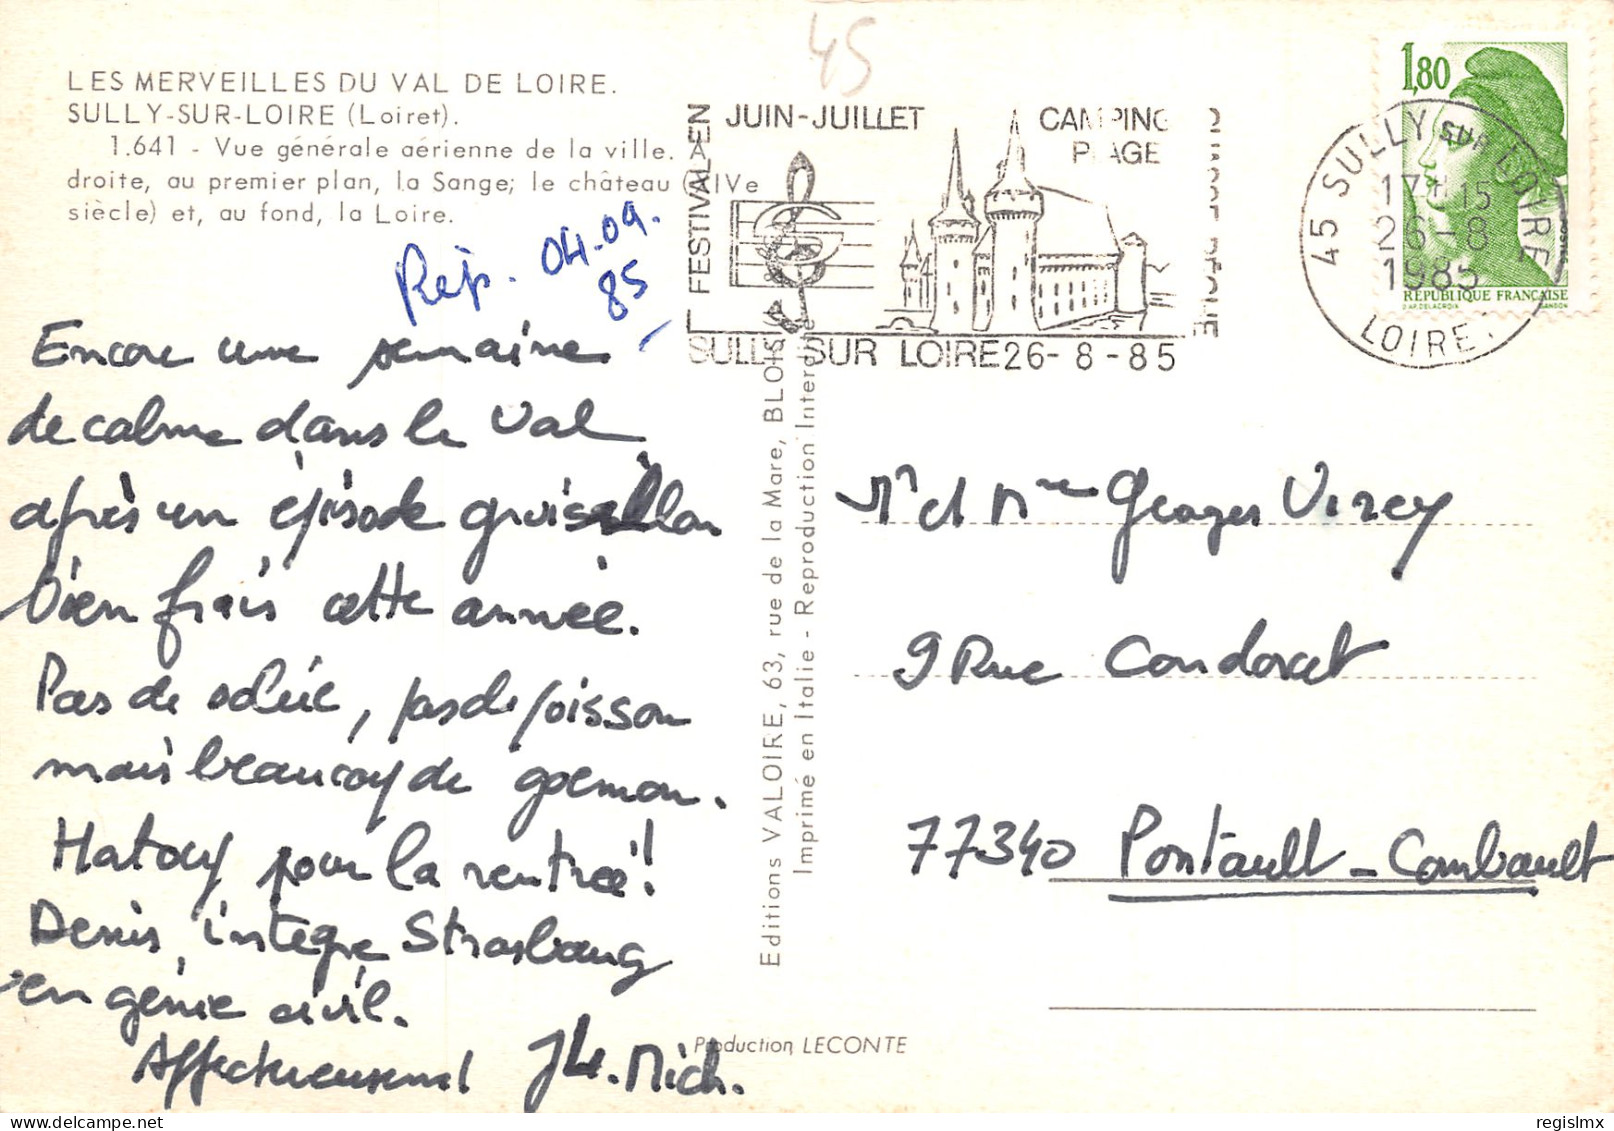 45
LES MERVEILLES DU VAL DE LOIRE.
SULLY-SUR-LOIRE (Loiret).
1.641 - Vue générale aérienne de la ville. A
droite, au premier plan, la Sange; le château (XIVe
siècle) et, au fond, la Loire.
Rép. 04.09.
85
FESTIVAL EN
JUIN-JUILLET
CAMPING
PLAGE
SULLY SUR LOIRE 26-8-85
1,80
RÉPUBLIQUE FRANÇAISE
45 SULLY SUR LOIRE
17H15
26-8
1985
LOIRET
Encore une semaine
de calme dans le Val
après un épisode groisillon
bien frais cette année.
Pas de soleil, pas de poisson
mais beaucoup de goemon.
Hatouy pour la rentrée!
Denis, intègre Strasbourg
en génie civil.
Affectueusement
Editions VALOIRE, 63, rue de la Mare, BLOIS
Imprimé en Italie - Reproduction Interdite
Mr et Mme Georges Virey
9 Rue Condorcet
77340 Pontault-Combault
Production LECONTE
regislmx